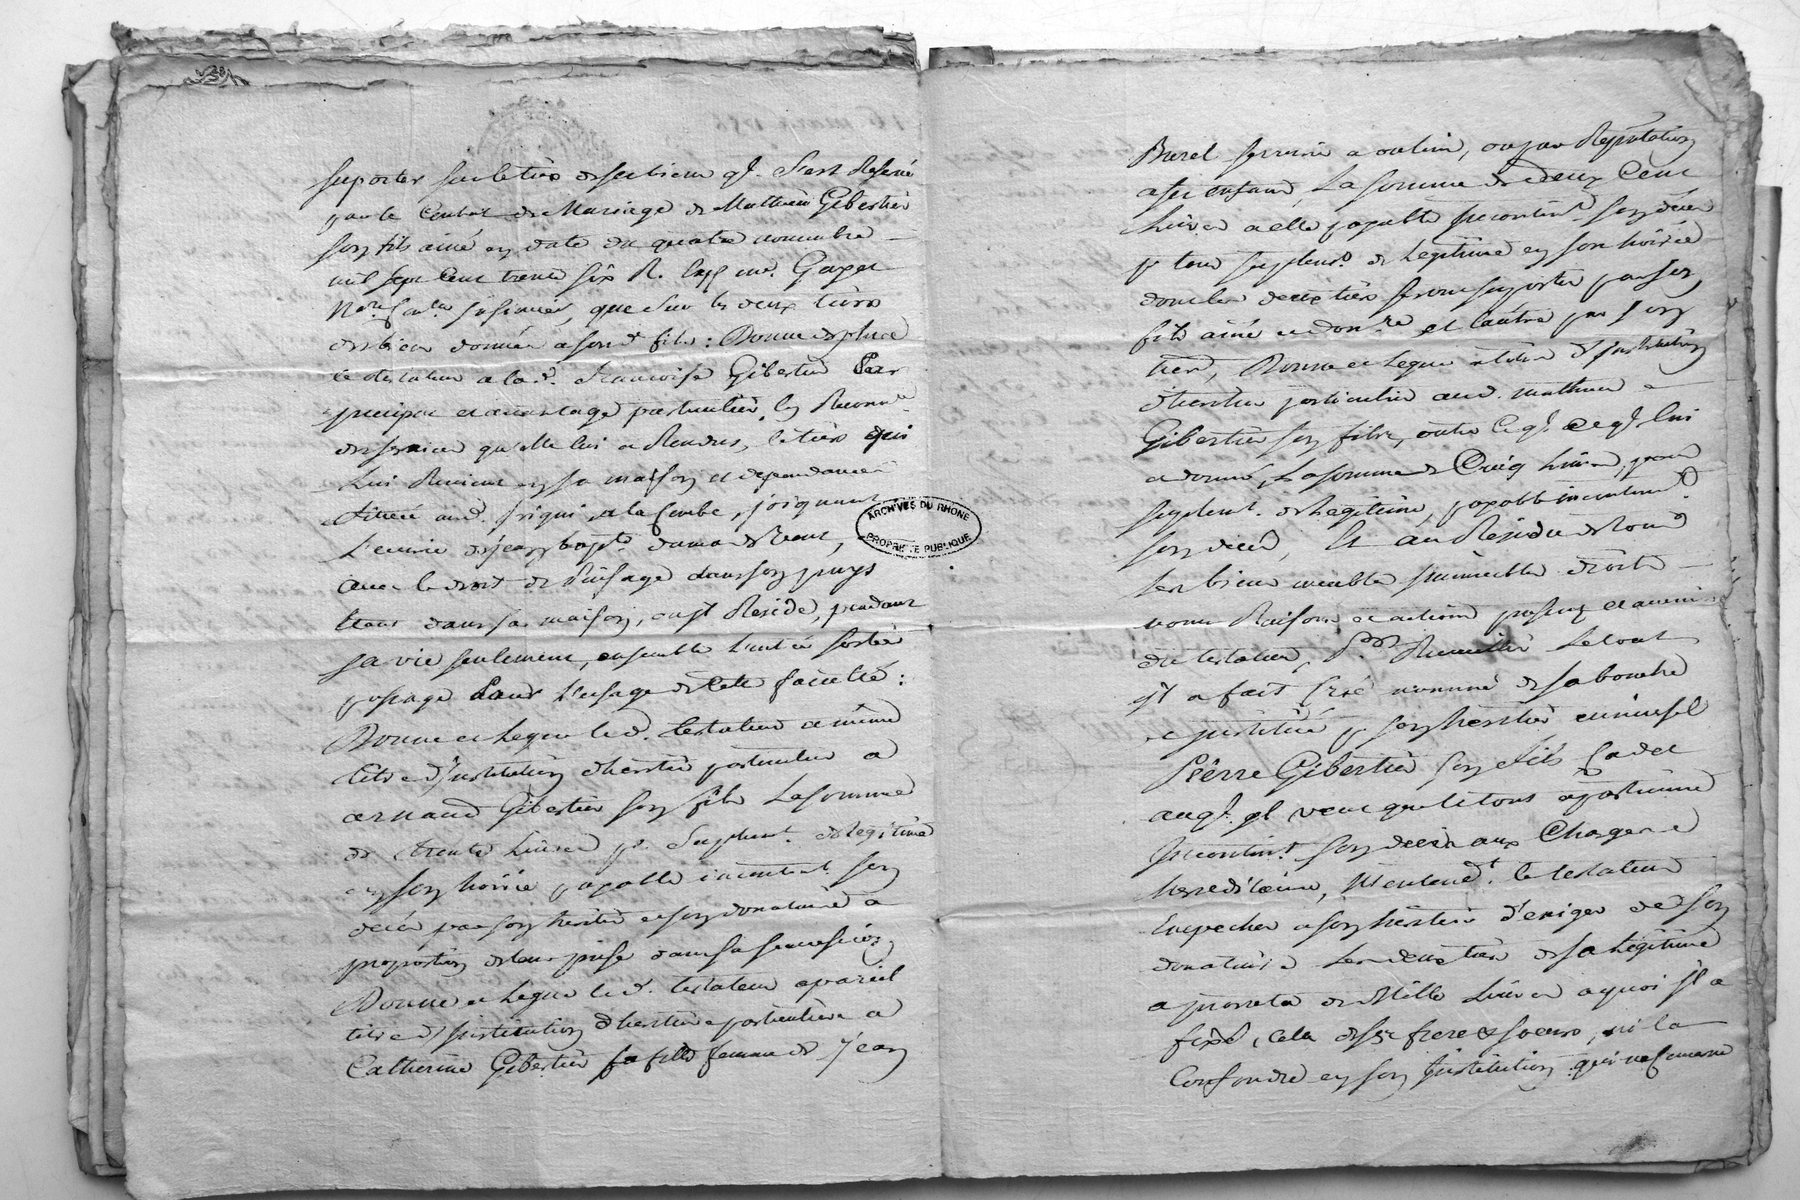 suporter sur le tiers de ses biens ql. s'est Reservé
par le Contrat de Mariage de Matthieu Gibertier
son fils ainé en date du quatre novembre
mil sept Cent trente six R. me. Gayet
Nore. que sur les deux tiers
des biens donnés a son d. fils : Donne de plus
le testateur a lad. Francoise Gibertier Par
preciput et avantage particulier, en Reconn.ce
des services qu'elle lui a Rendus, le tiers qui
lui Revient en sa maison et dependances
située aud. a la Combe, joignant
L'ecurie de jean bapte.
avec le droit de Puisage dans son puys
étant dans sa maison, ou jl Reside, pendant
sa vie seulement, ensemble
passage Pour l'usage de cette faculté :
Donne et Legue led. testateur a même
titre d'Institution d'heritier particulier a
arnaud Gibertier son fils La somme
de trente Livres pr. Suplemt. de legitime
en son hoirie payable incontint. son
décés par son heritier et son donataire a
proportion de leur prise dans sa succession
Donne et Legue led. testateur a pareil
titre d'jnstitution d'heritiere particulière a
Catherine Gibertier sa fille femme de jean
Burel a oulin, ou par Reputation
a ses enfans, La somme de deux Cent
Livres a elle payable jncontint. son décés
pr tout suplemt. de Legitime en son hoirie
dont les deux tiers seront suportés par son
fils ainé et donre. et l'autre par son
herer, Donne et Legue a titre d'jnstitution
d'heritier particulier aud. mathieu
Gibertier son fils, outre ce ql. lui
a donné, La somme de Cinq Livres, pour
suplemt. de Legitime, payable incontinent
son décés, Et au Residu de tous
ses biens meubles jmmeubles droits
noms Raisons et actions presens et avenir
le testateur, Le tout
jl a fait Créé nommé de sa bouche
et jnstitué pr son heritier universel
Pierre Gibertier son fils Cadet
auql. jl veut que le tout apartienne
jncontint. son décés aux Charges
hereditaires, N'entend. le testateur
empecher a son heritier d'exiger de son
donataire Les deux tiers de sa Légitime
a prorata de Mille Livres a quoi jl a
fixé, cela de ses frere & soeurs, ni la
Confondre en son Jnstitution qui ne concerne